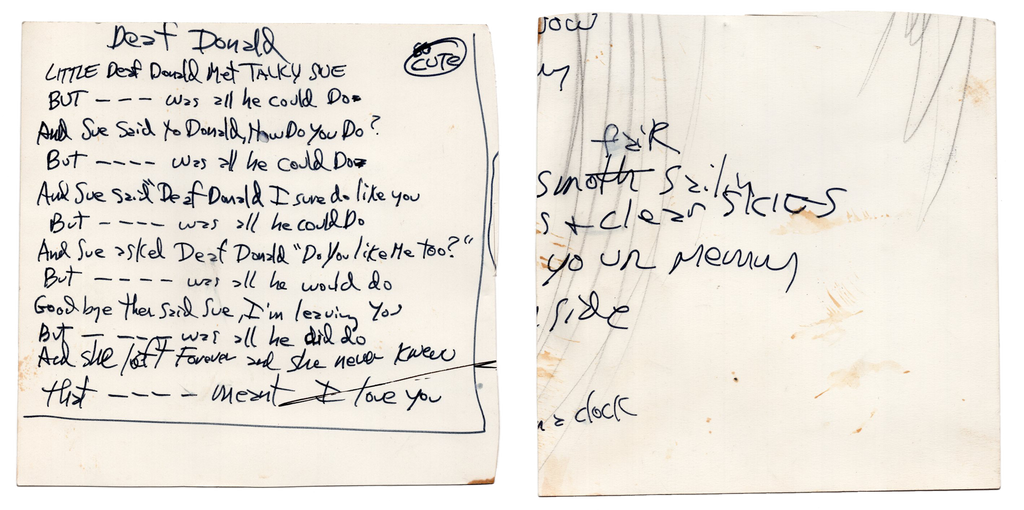 Deaf Donald
SO CUTE
LITTLE Deaf Donald Met TALKY SUE
BUT ---- was all he could Do
And Sue Said to Donald, How Do You Do?
But ---- was all he could Do
And Sue said "Deaf Donald I sure do like you
But ---- was all he could Do
And Sue asked Deaf Donald "Do You like Me too?"
But ---- was all he would do
Good bye then said Sue, I'm leaving You
But ----- was all he did do
And she left Forever and she never Knew
that ---- meant I love you
fair
smoth sailin
s + clear skies
your memory
side
a clock